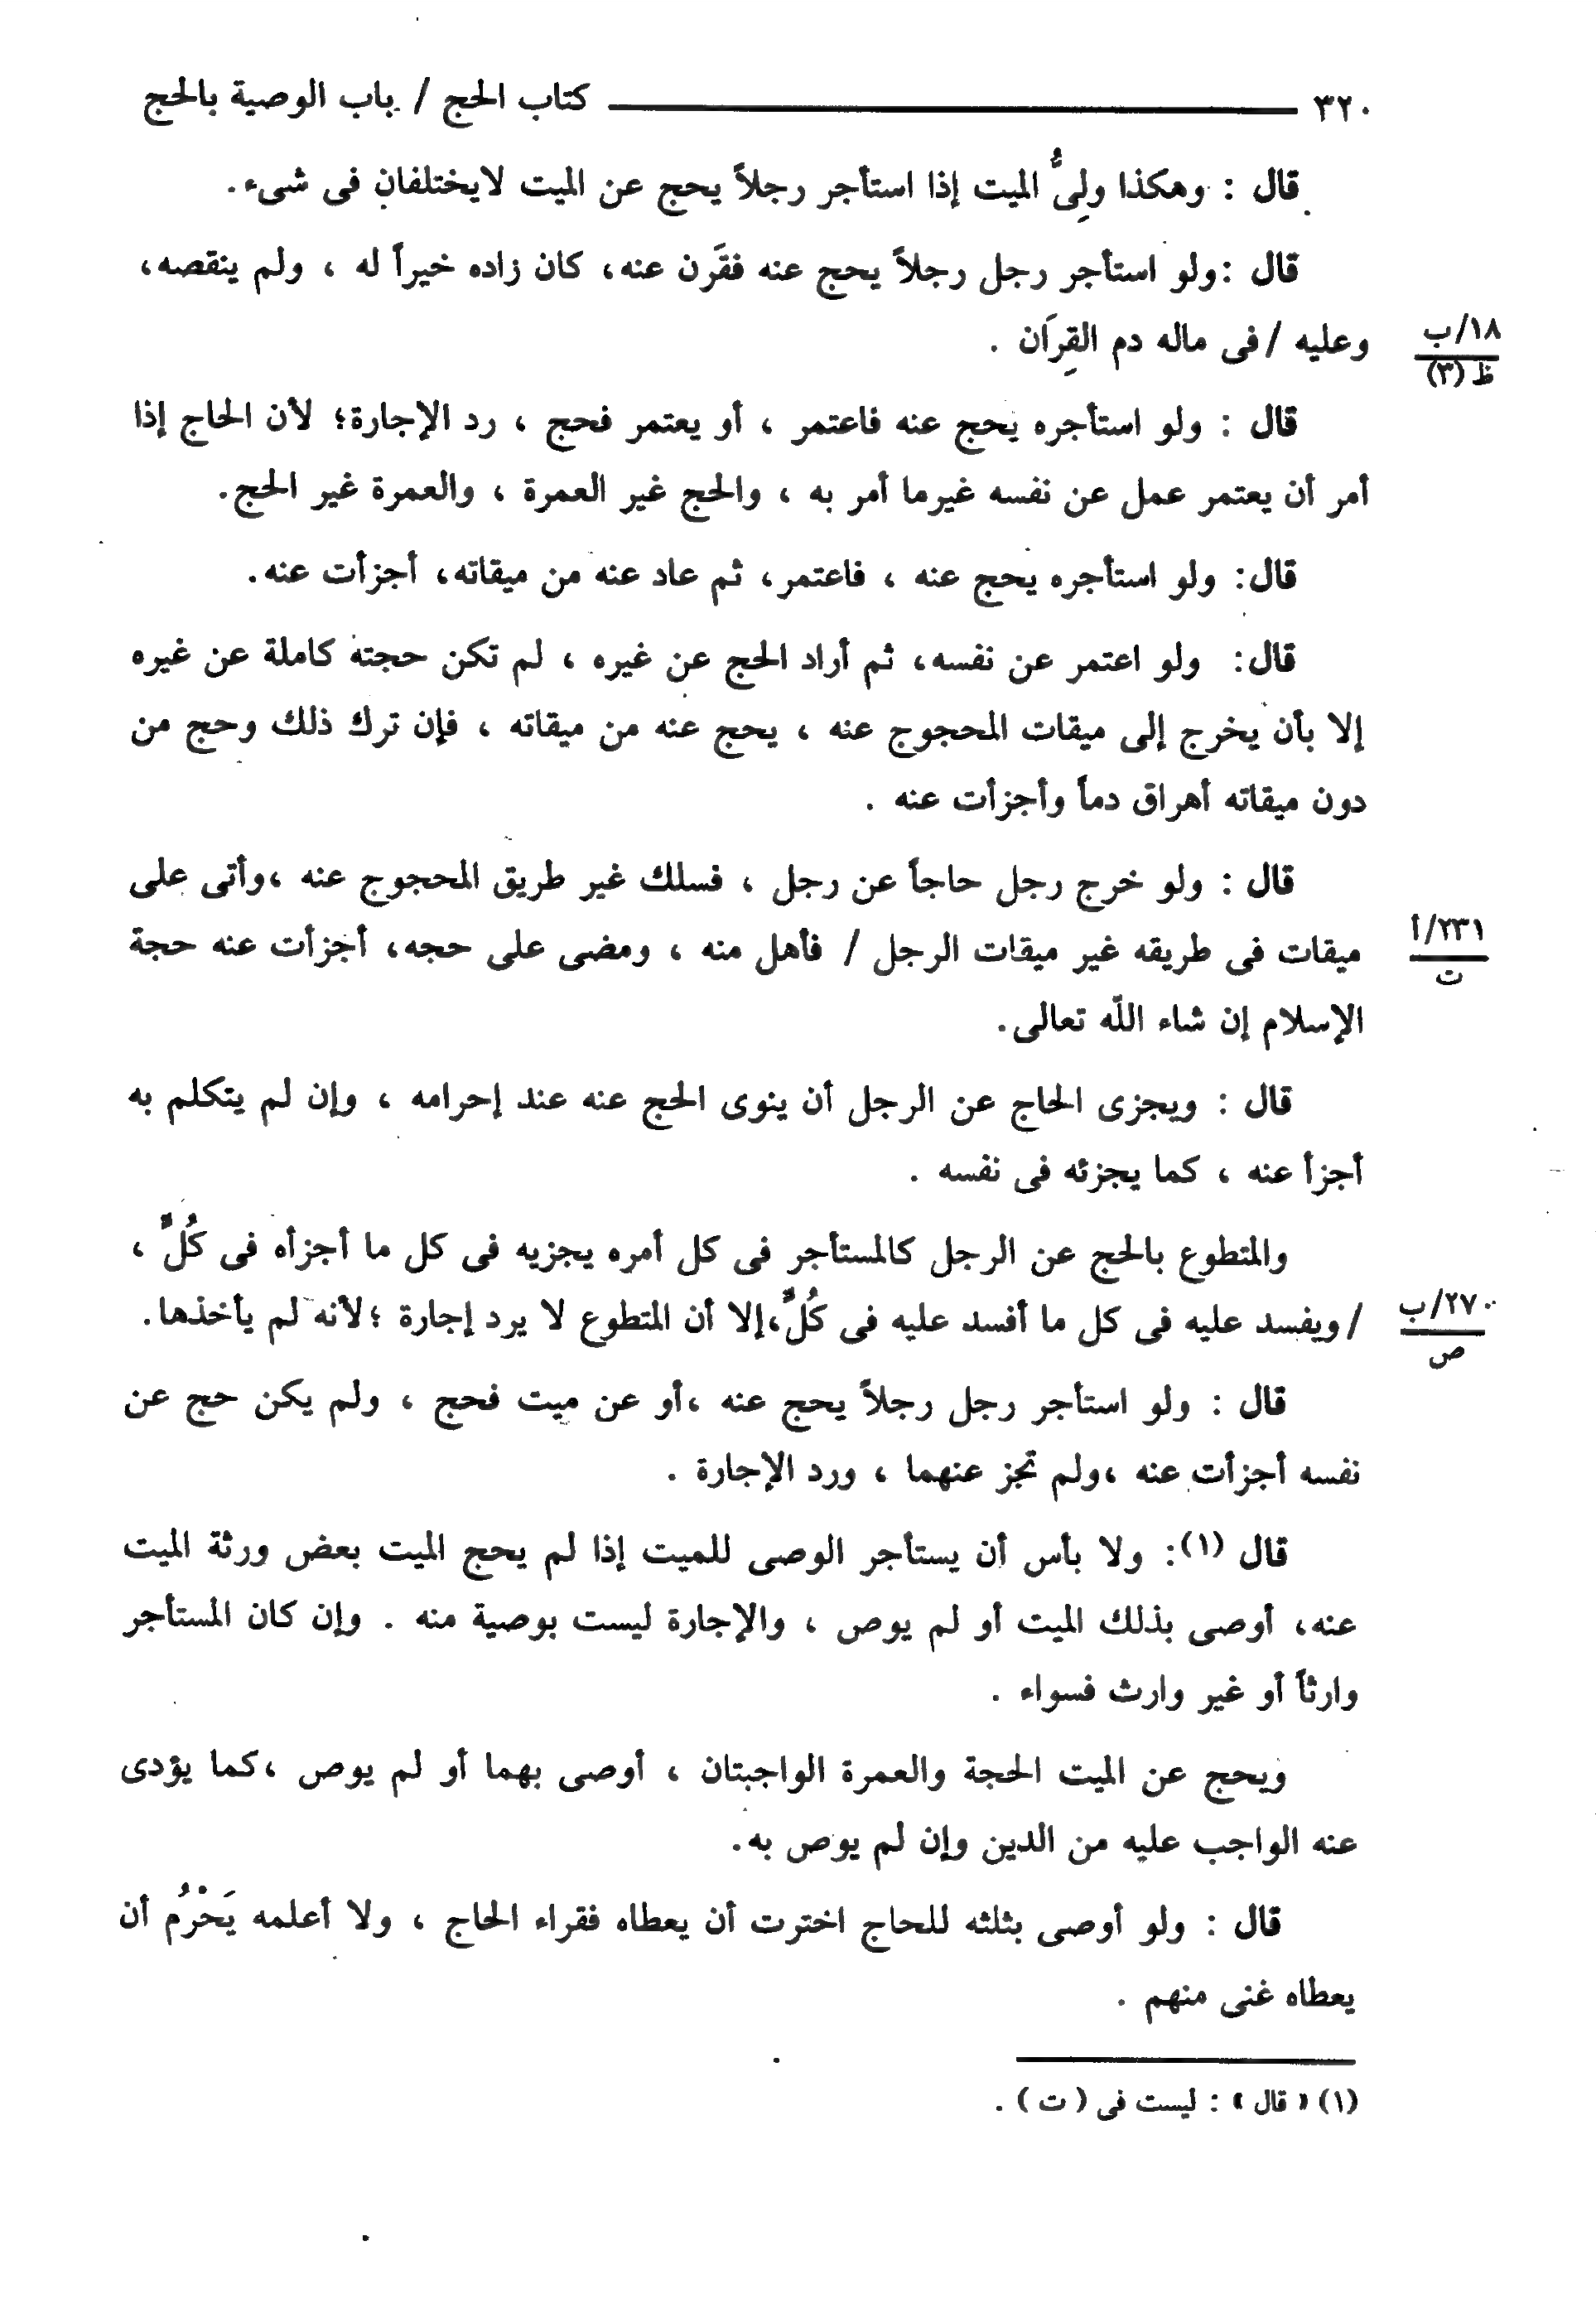 ٣٢٠ كتاب الحج / باب الوصية بالحج
قال : وهكذا ولِىُّ الميت إذا استأجر رجلاً يحج عن الميت لايختلفان فى شىء.
قال :ولو استأجر رجل رجلاً يحج عنه فقَرن عنه، كان زاده خيراً له ، ولم ينقصه،
وعليه /فى ماله دم القِرَان .
١٨/ب
ظ (٣)
قال : ولو استأجره يحج عنه فاعتمر ، أو يعتمر فحج ، رد الإجارة؛ لأن الحاج إذا
أمر أن يعتمر عمل عن نفسه غيرما أمر به ، والحج غير العمرة ، والعمرة غير الحج.
قال: ولو استأجره يحج عنه ، فاعتمر، ثم عاد عنه من ميقاته، أجزأت عنه.
قال: ولو اعتمر عن نفسه، ثم أراد الحج عن غيره ، لم تكن حجته كاملة عن غيره
إلا بأن يخرج إلى ميقات المحجوج عنه ، يحج عنه من ميقاته ، فإن ترك ذلك وحج من
دون ميقاته أهراق دماً وأجزأت عنه .
قال : ولو خرج رجل حاجاً عن رجل ، فسلك غير طريق المحجوج عنه ،وأتى على
ميقات فى طريقه غير ميقات الرجل / فأهل منه ، ومضى على حجه، أجزأت عنه حجة
٢٣١/أ
ت
الإسلام إن شاء الله تعالى.
قال : ويجزى الحاج عن الرجل أن ينوى الحج عنه عند إحرامه ، وإن لم يتكلم به
أجزأ عنه ، كما يجزئه فى نفسه .
والمتطوع بالحج عن الرجل كالمستأجر فى كل أمره يجزيه فى كل ما أجزأه فى كُلٍّ ،
/ ويفسد عليه فى كل ما أفسد عليه فى كُلٍّ،إلا أن المتطوع لا يرد إجارة ؛لأنه لم يأخذها.
٢٧٠/ب
ص
قال : ولو استأجر رجل رجلاً يحج عنه ،أو عن ميت فحج ، ولم يكن حج عن
نفسه أجزأت عنه ،ولم تجز عنهما ، ورد الإجارة .
قال (١): ولا بأس أن يستأجر الوصى للميت إذا لم يحج الميت بعض ورثة الميت
عنه، أوصى بذلك الميت أو لم يوص ، والإجارة ليست بوصية منه . وإن كان المستأجر
وارثاً أو غير وارث فسواء .
ويحج عن الميت الحجة والعمرة الواجبتان ، أوصى بهما أو لم يوص ،كما يؤدى
عنه الواجب عليه من الدين وإن لم يوص به.
قال : ولو أوصى بثلثه للحاج اخترت أن يعطاه فقراء الحاج ، ولا أعلمه يَحْرُم أن
يعطاه غنى منهم .
(١) « قال » : ليست فى ( ت ) .